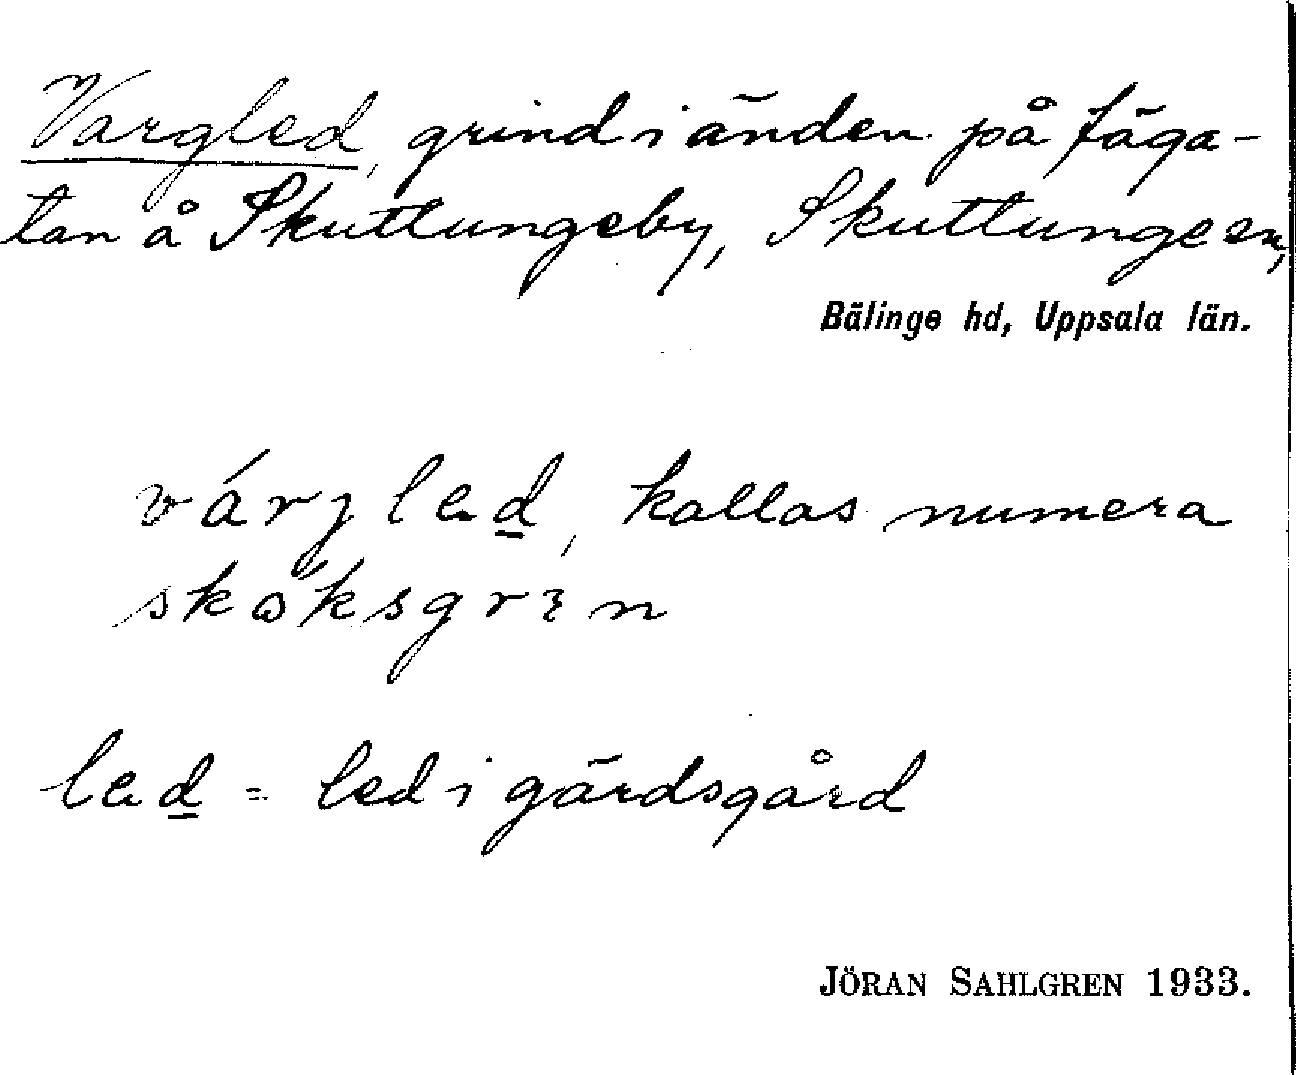 Vargled, grind i änden på fäga-
tan å Skuttungeby, Skuttunge sn,
Bälinge hd, Uppsala län.
várjled, kallas numera
skoksgrın
led = led i gärdsgård
JÖRAN SAHLGREN 1933.